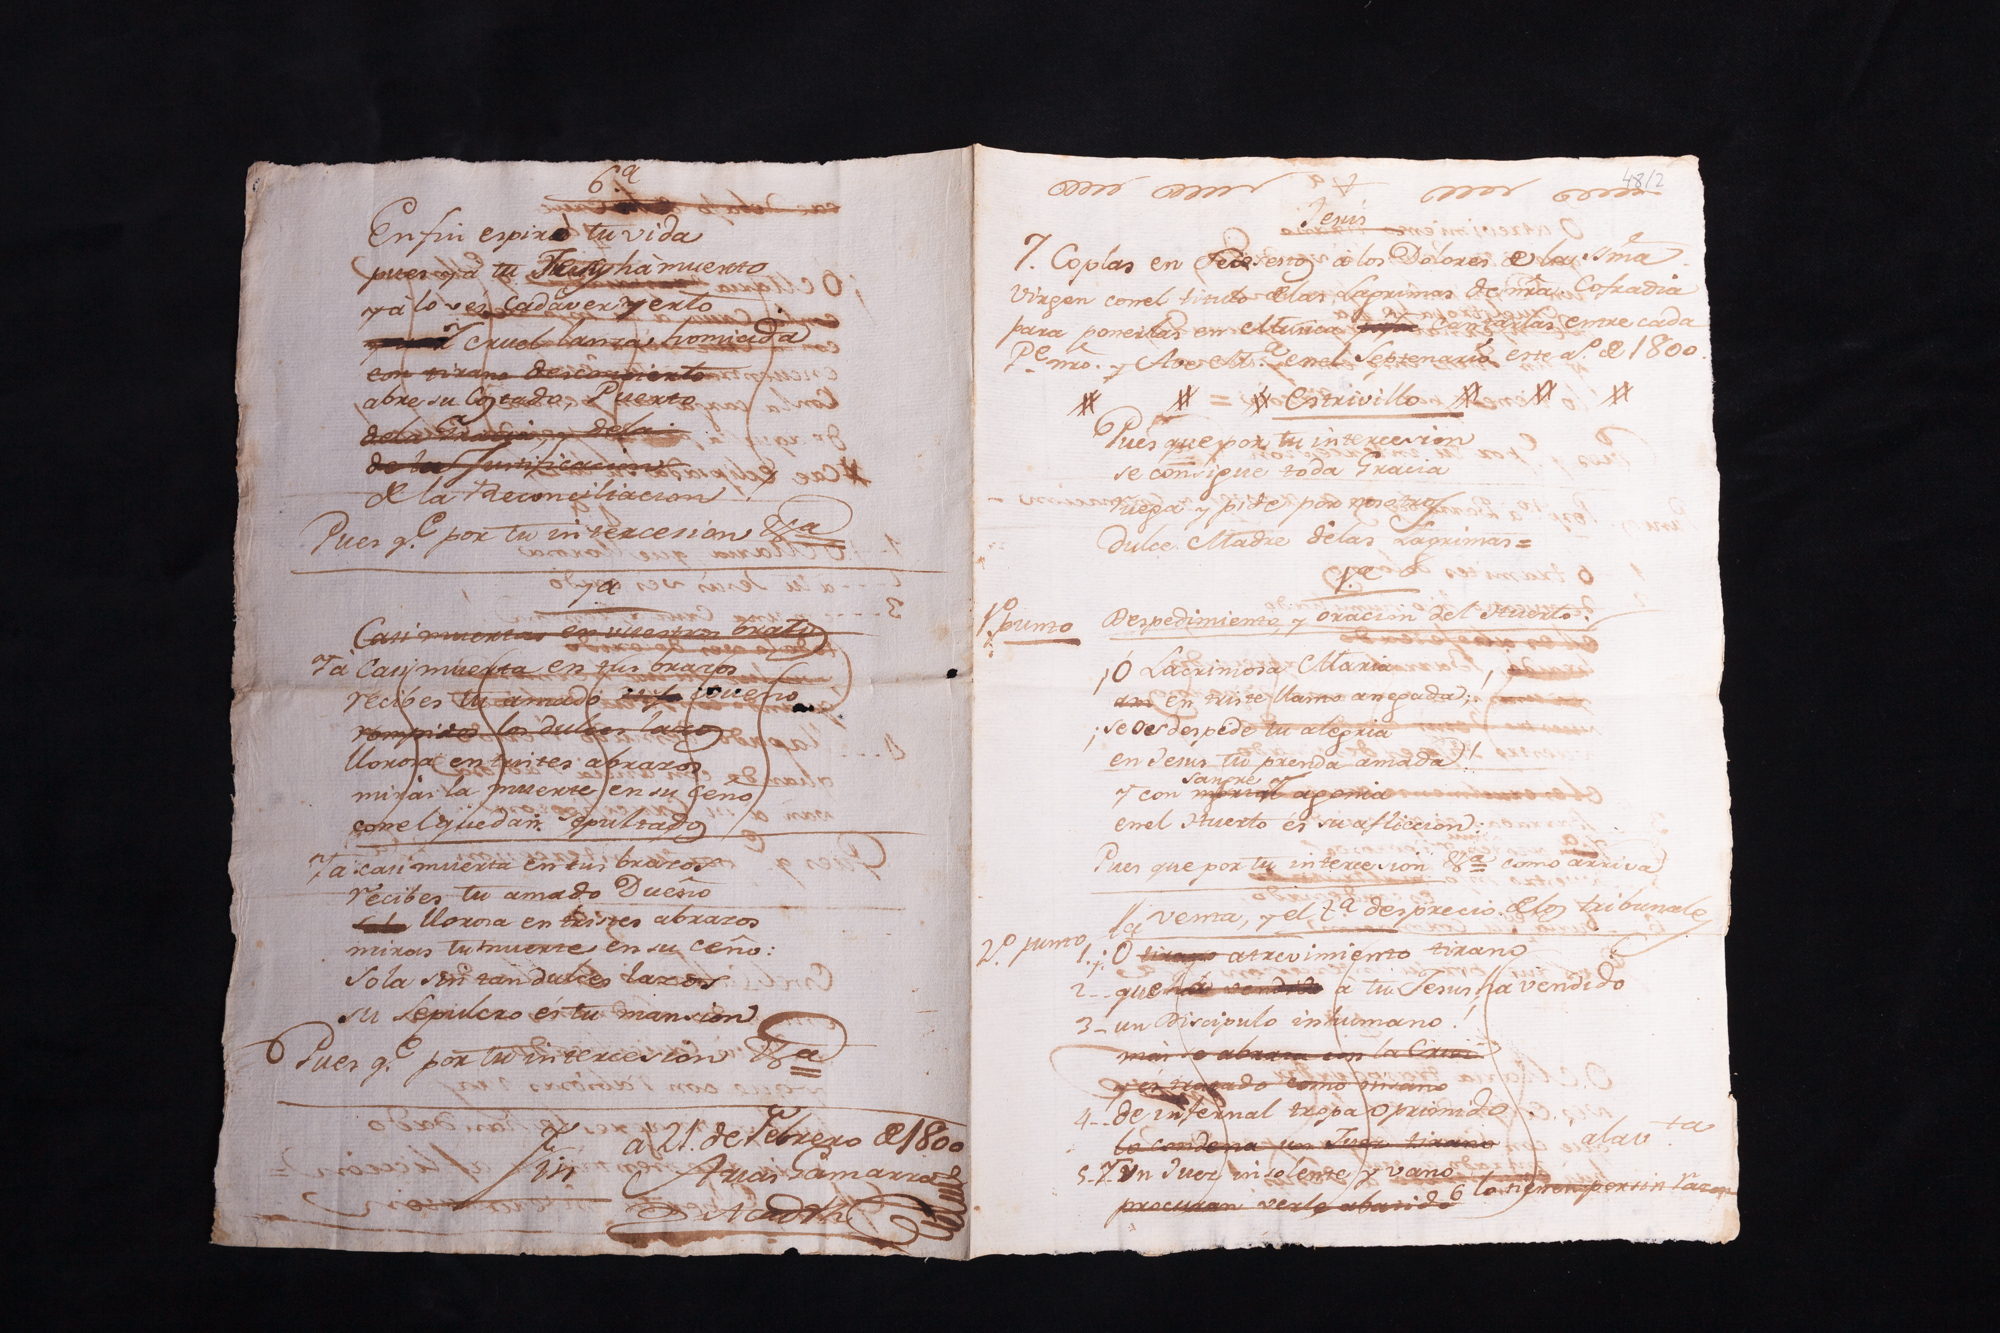 6.ª
Enfin espira tu vida
pues ya tu Jesus ha muerto
ya lo ves cadaver yerto
cruel lanza homicida
con tirano desconcierto
abre su Costado, Puerto
de la Gracia y de la
de la Justificacion
de la Reconciliacion
Pues q.e por tu intercesion &a
7a
Casi muerta en vuestros brazos
Ya Casi muerta en tus brazos
recibes tu amado dueño
rompidos los dulces lazos
llorosa en tristes abrazos
miras la muerte en su ceño
con el quedan sepultados
Ya casi muerta en tus brazos
recibes tu amado Dueño
llorosa en tristes abrazos
miras tu muerte en su ceño:
Sola sin tan dulces lazos
su Sepulcro és tu mansion
Pues q.e por tu intercesion &a
Fin
a 21. de Febrero de 1800
Arias Samarria
48/2
Jesús
7. Coplas en a los Dolores de la Sma
Virgen con el titulo de las Lagrimas de nra Cofradia
para ponerlas en Musica cantarlas entre cada
P.e nro. y Ave M.a en el Septenario este a.o de 1800.
Estrivillo
Pues que por tu intercesion
se consigue toda Gracia
ruega y pide por nosotros
Dulce Madre delas Lagrimas=
1.a
1.o punto
Despedimiento, y oracion del Huerto.
¡Ó Lacrimosa Maria
en triste llanto anegada;
¡se os despide tu alegria
en Jesus tu prenda amada!
sangre
y con mortal agonia
en el Huerto és su afliccion:
Pues que por tu intercesion &a como arriva
2.o punto
la venta, y el desprecio de los tribunales
1. ¡O tirano atrevimiento tirano
2-- que há vendido a tu Jesus ha vendido
3- un Discipulo inhumano!
más se abraza con la Cruz
y és tratado como tirano
4-- de infernal tropa oprimido
lo condena un Juez tirano
a la v.ta
5-- Y un Juez insolente y vano
procuran verle abatido 6 lo tienen por sin razon